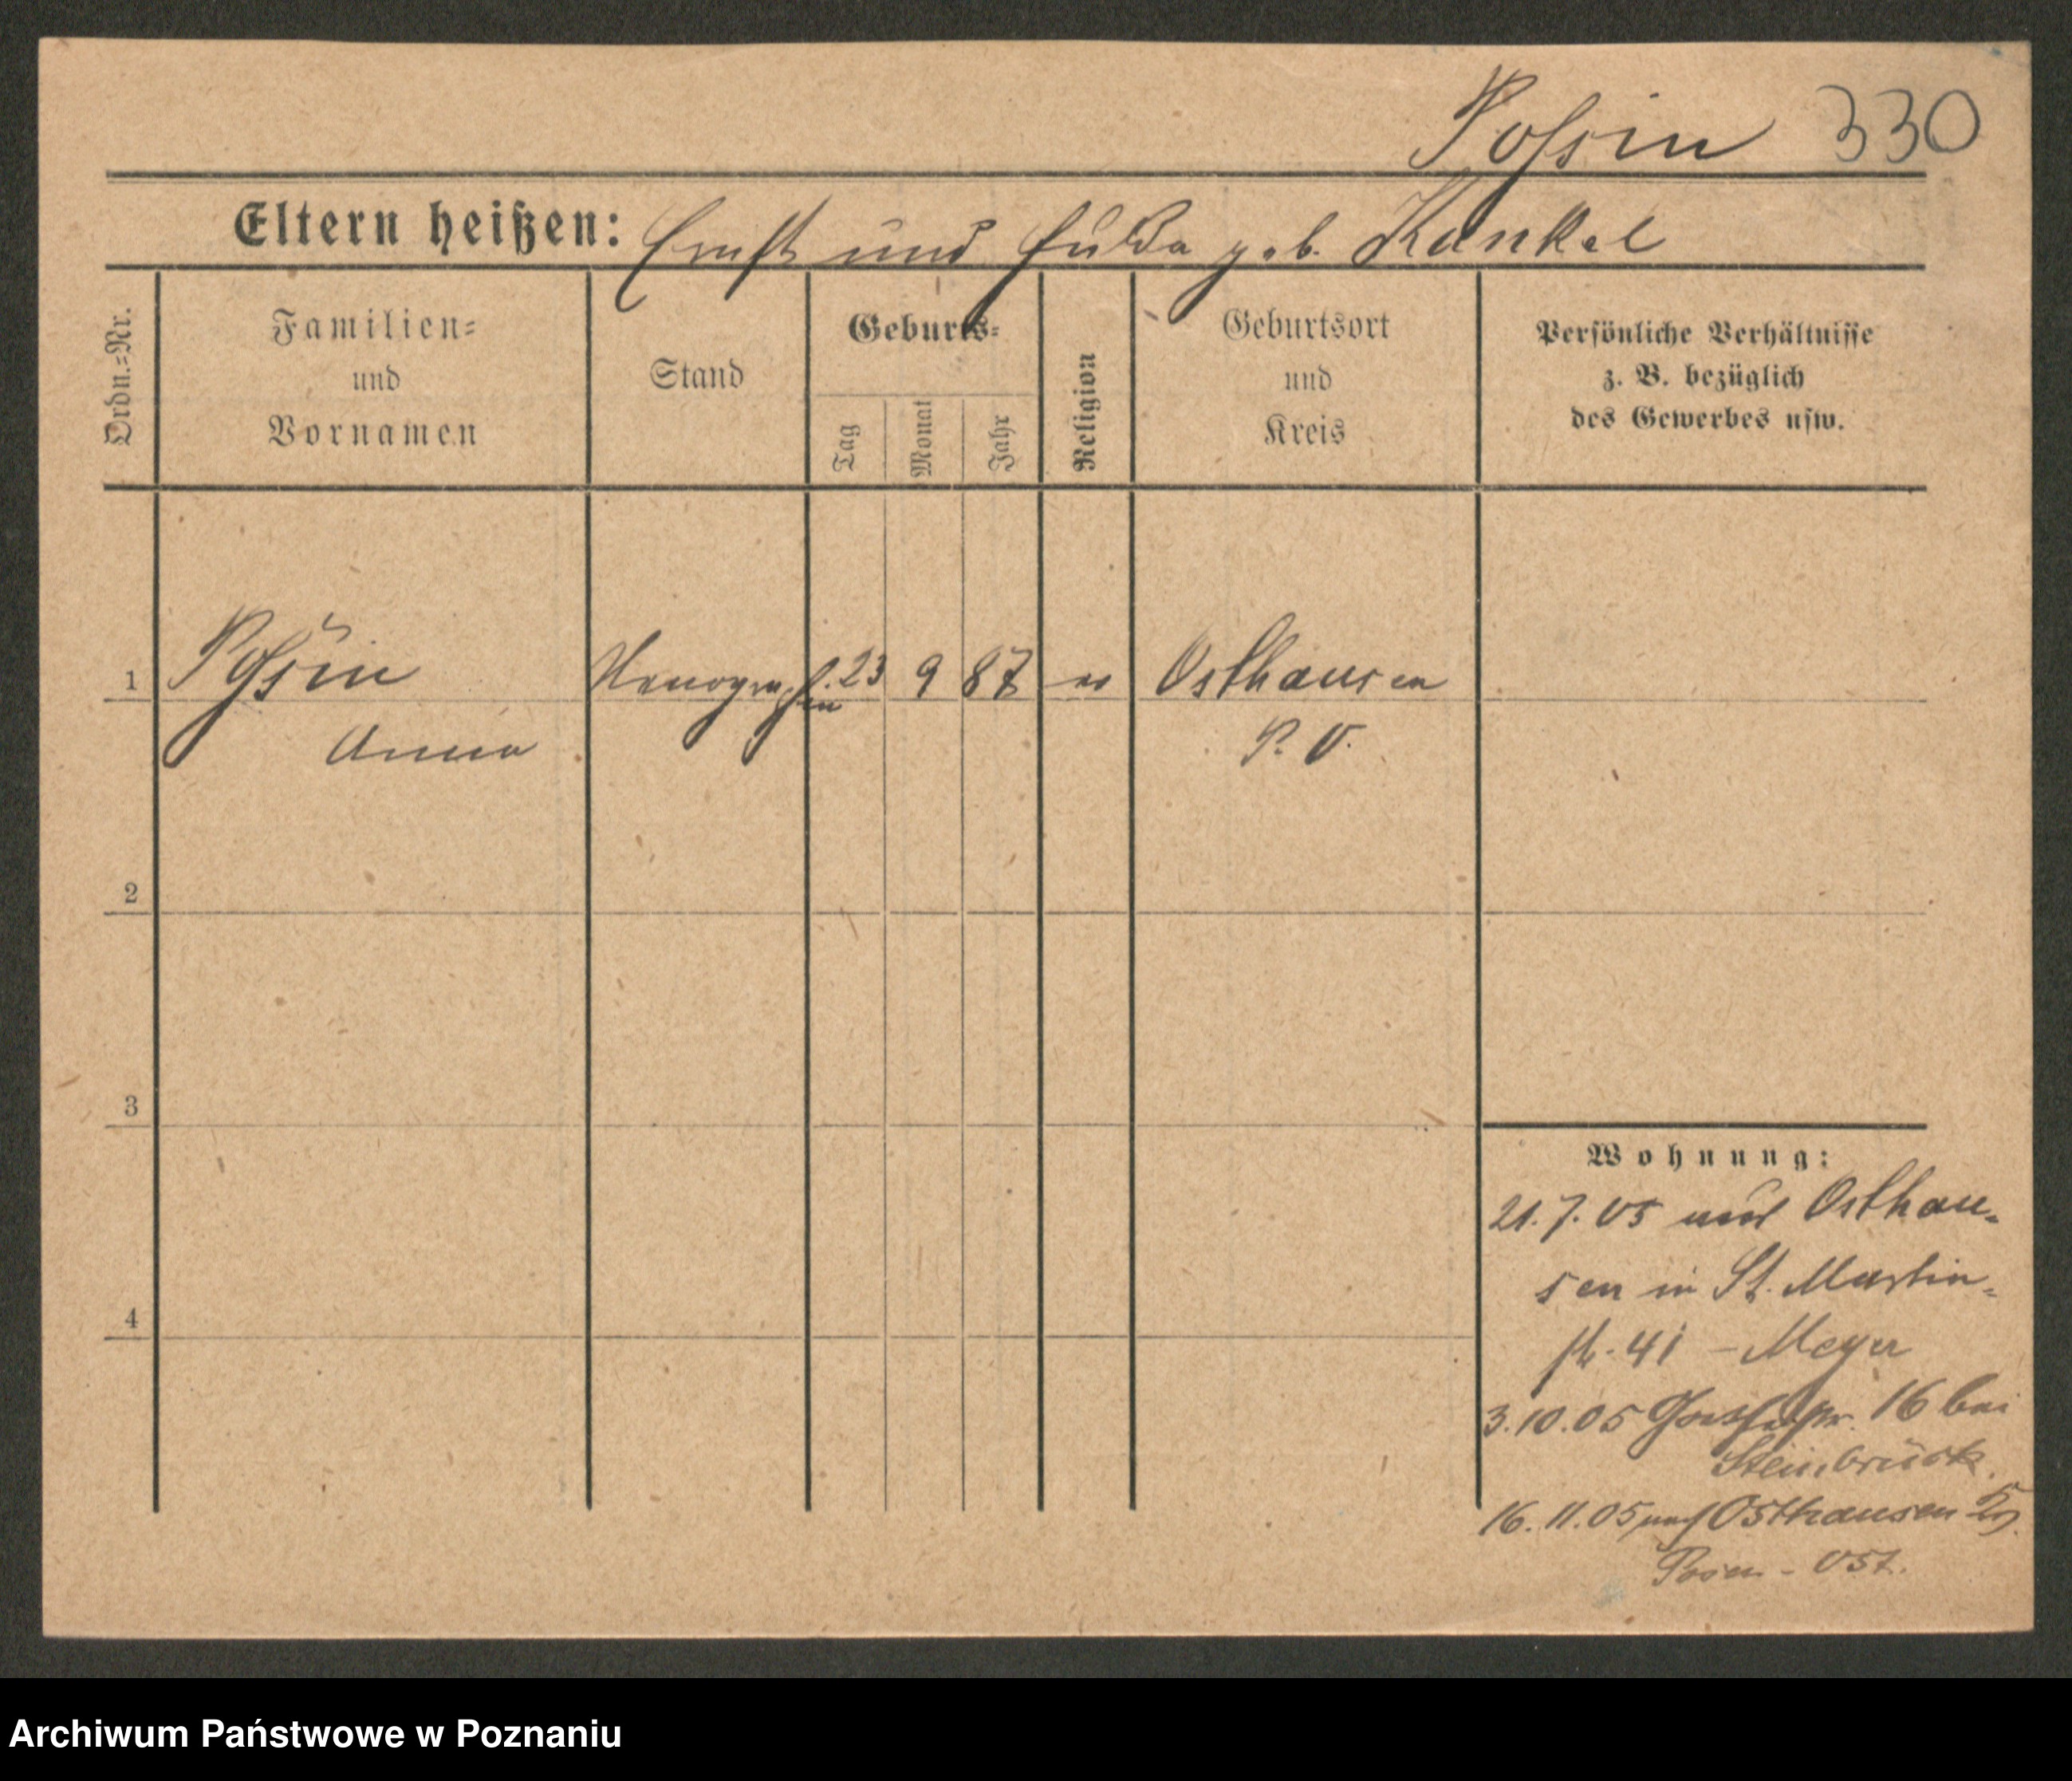 Poſsin 330
Eltern heißen: Ernst und Hulda geb. Kunkel
Ordn.=Nr.
Familien=
und
Vornamen
Stand
Geburts=
Tag
Monat
Jahr
Religion
Geburtsort
und
Kreis
Persönliche Verhältnisse
z. B. bezüglich
des Gewerbes usw.
1 Poſsin 23 9 87 ev Osthausen
Anna P. O.
2
3
4
Wohnung:
21.7.05 aus Osthau=
sen in St. Martin=
str. 41 – Meyer
3.10.05 16 bei
Steinbrück
16.11.05 nach Osthausen
Posen - Ost.
Archiwum Państwowe w Poznaniu